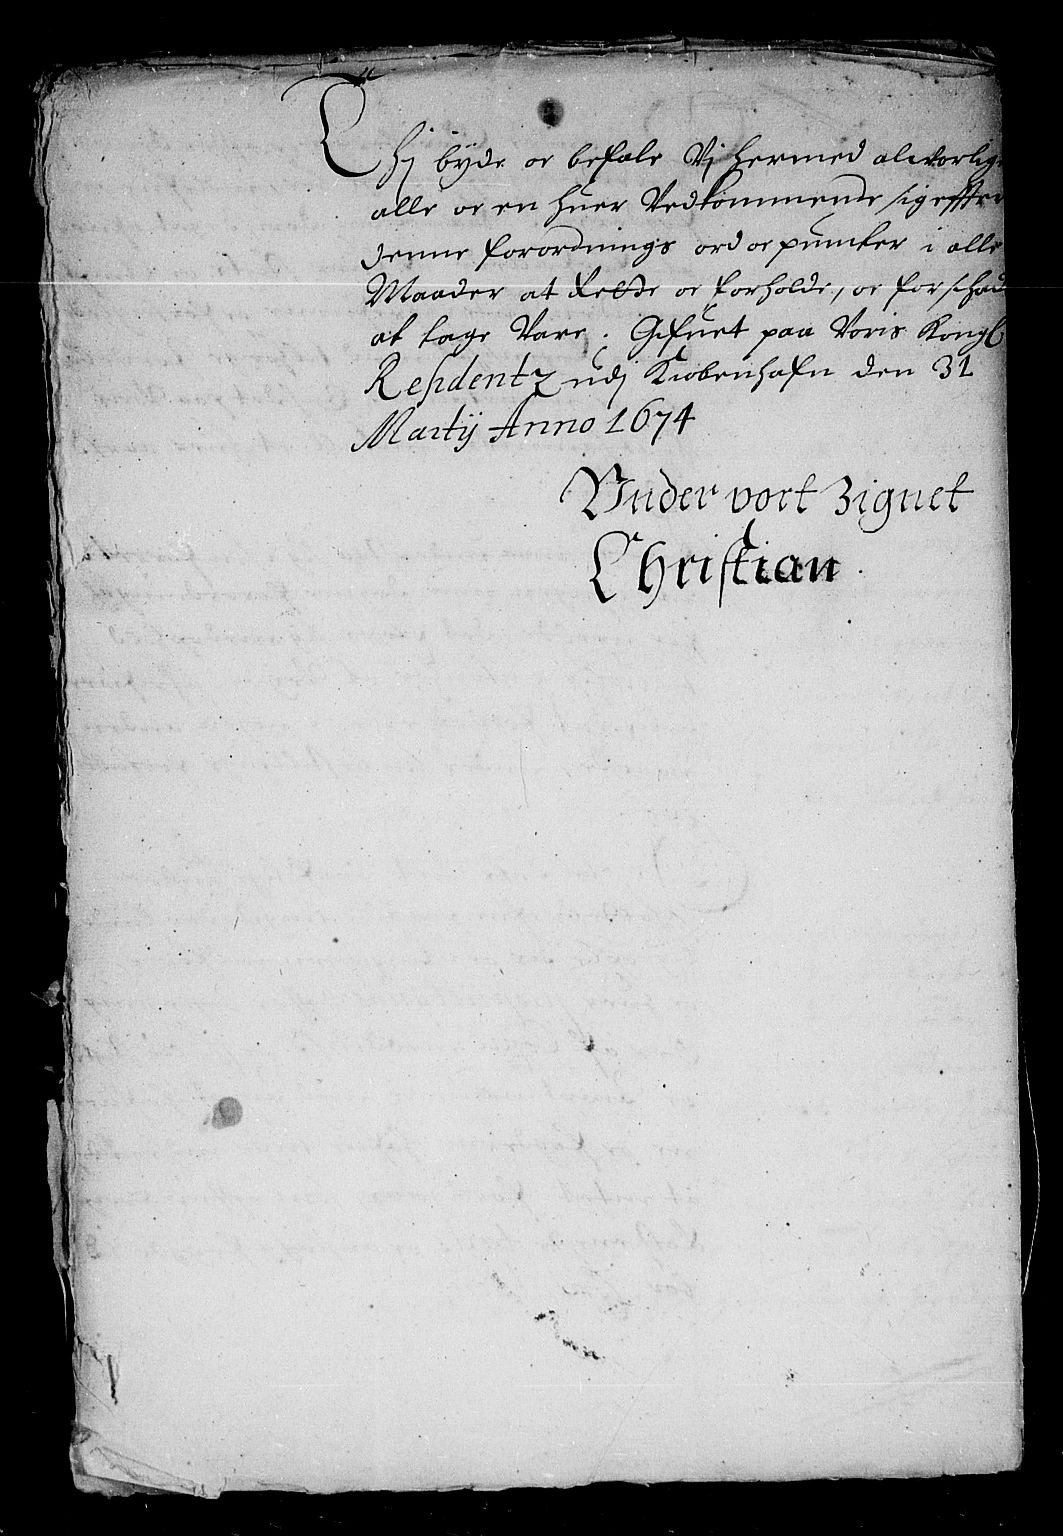 Thj byde oc befale Vj hermed alworlig
alle oc en huer Vedkommende sig effter
denne forordnings ord oc puncter i alle
Maader at rette oc forholde, oc for schade
at tage Vare. Gifuet paa Voris Kongl
Residentz udj Kiøbenhafn den 31
Martij Anno 1674
Vnder vort Zignet
Christian.